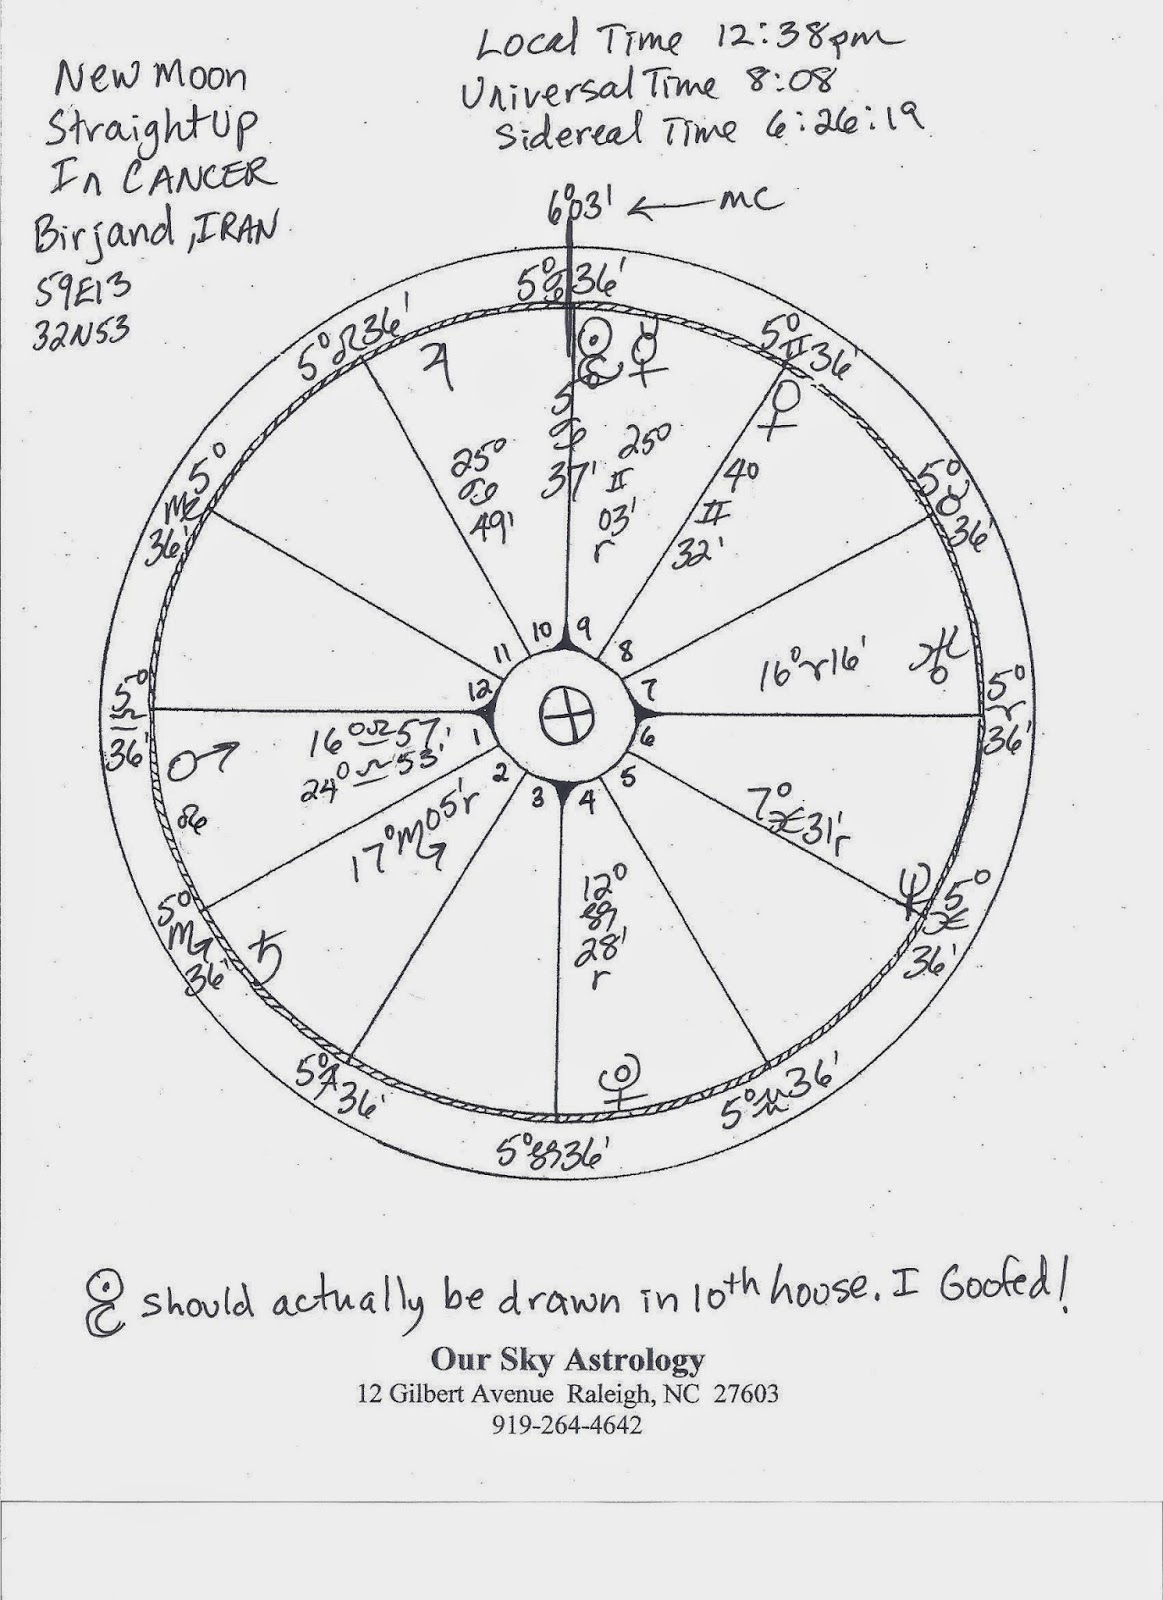 New Moon
Straight Up
In CANCER
Birjand, IRAN
59E13
32N53
Local Time 12:38pm
Universal Time 8:08
Sidereal Time 6:26:19
6°03' ← MC
5°♋36'
5°♊36'
5°♉36'
5°♈36'
5°♓36'
5°♒36'
5°♑36'
5°♐36'
5°♏36'
5°♎36'
5°♍36'
5°♌36'
♃
25°♋49'
☉☽
5♋37'
☿
25°♊03'r
♀
4°♊32'
16°♈16' ♅
7°♓31'r
♆
12°♑28'r
♇
♂ 16°♎57'
☊ 24°♎53'
17°♏05'r
♄
10 9
11 8
12 7
1 6
2 5
3 4
☉☽ should actually be drawn in 10th house. I Goofed!
Our Sky Astrology
12 Gilbert Avenue Raleigh, NC 27603
919-264-4642